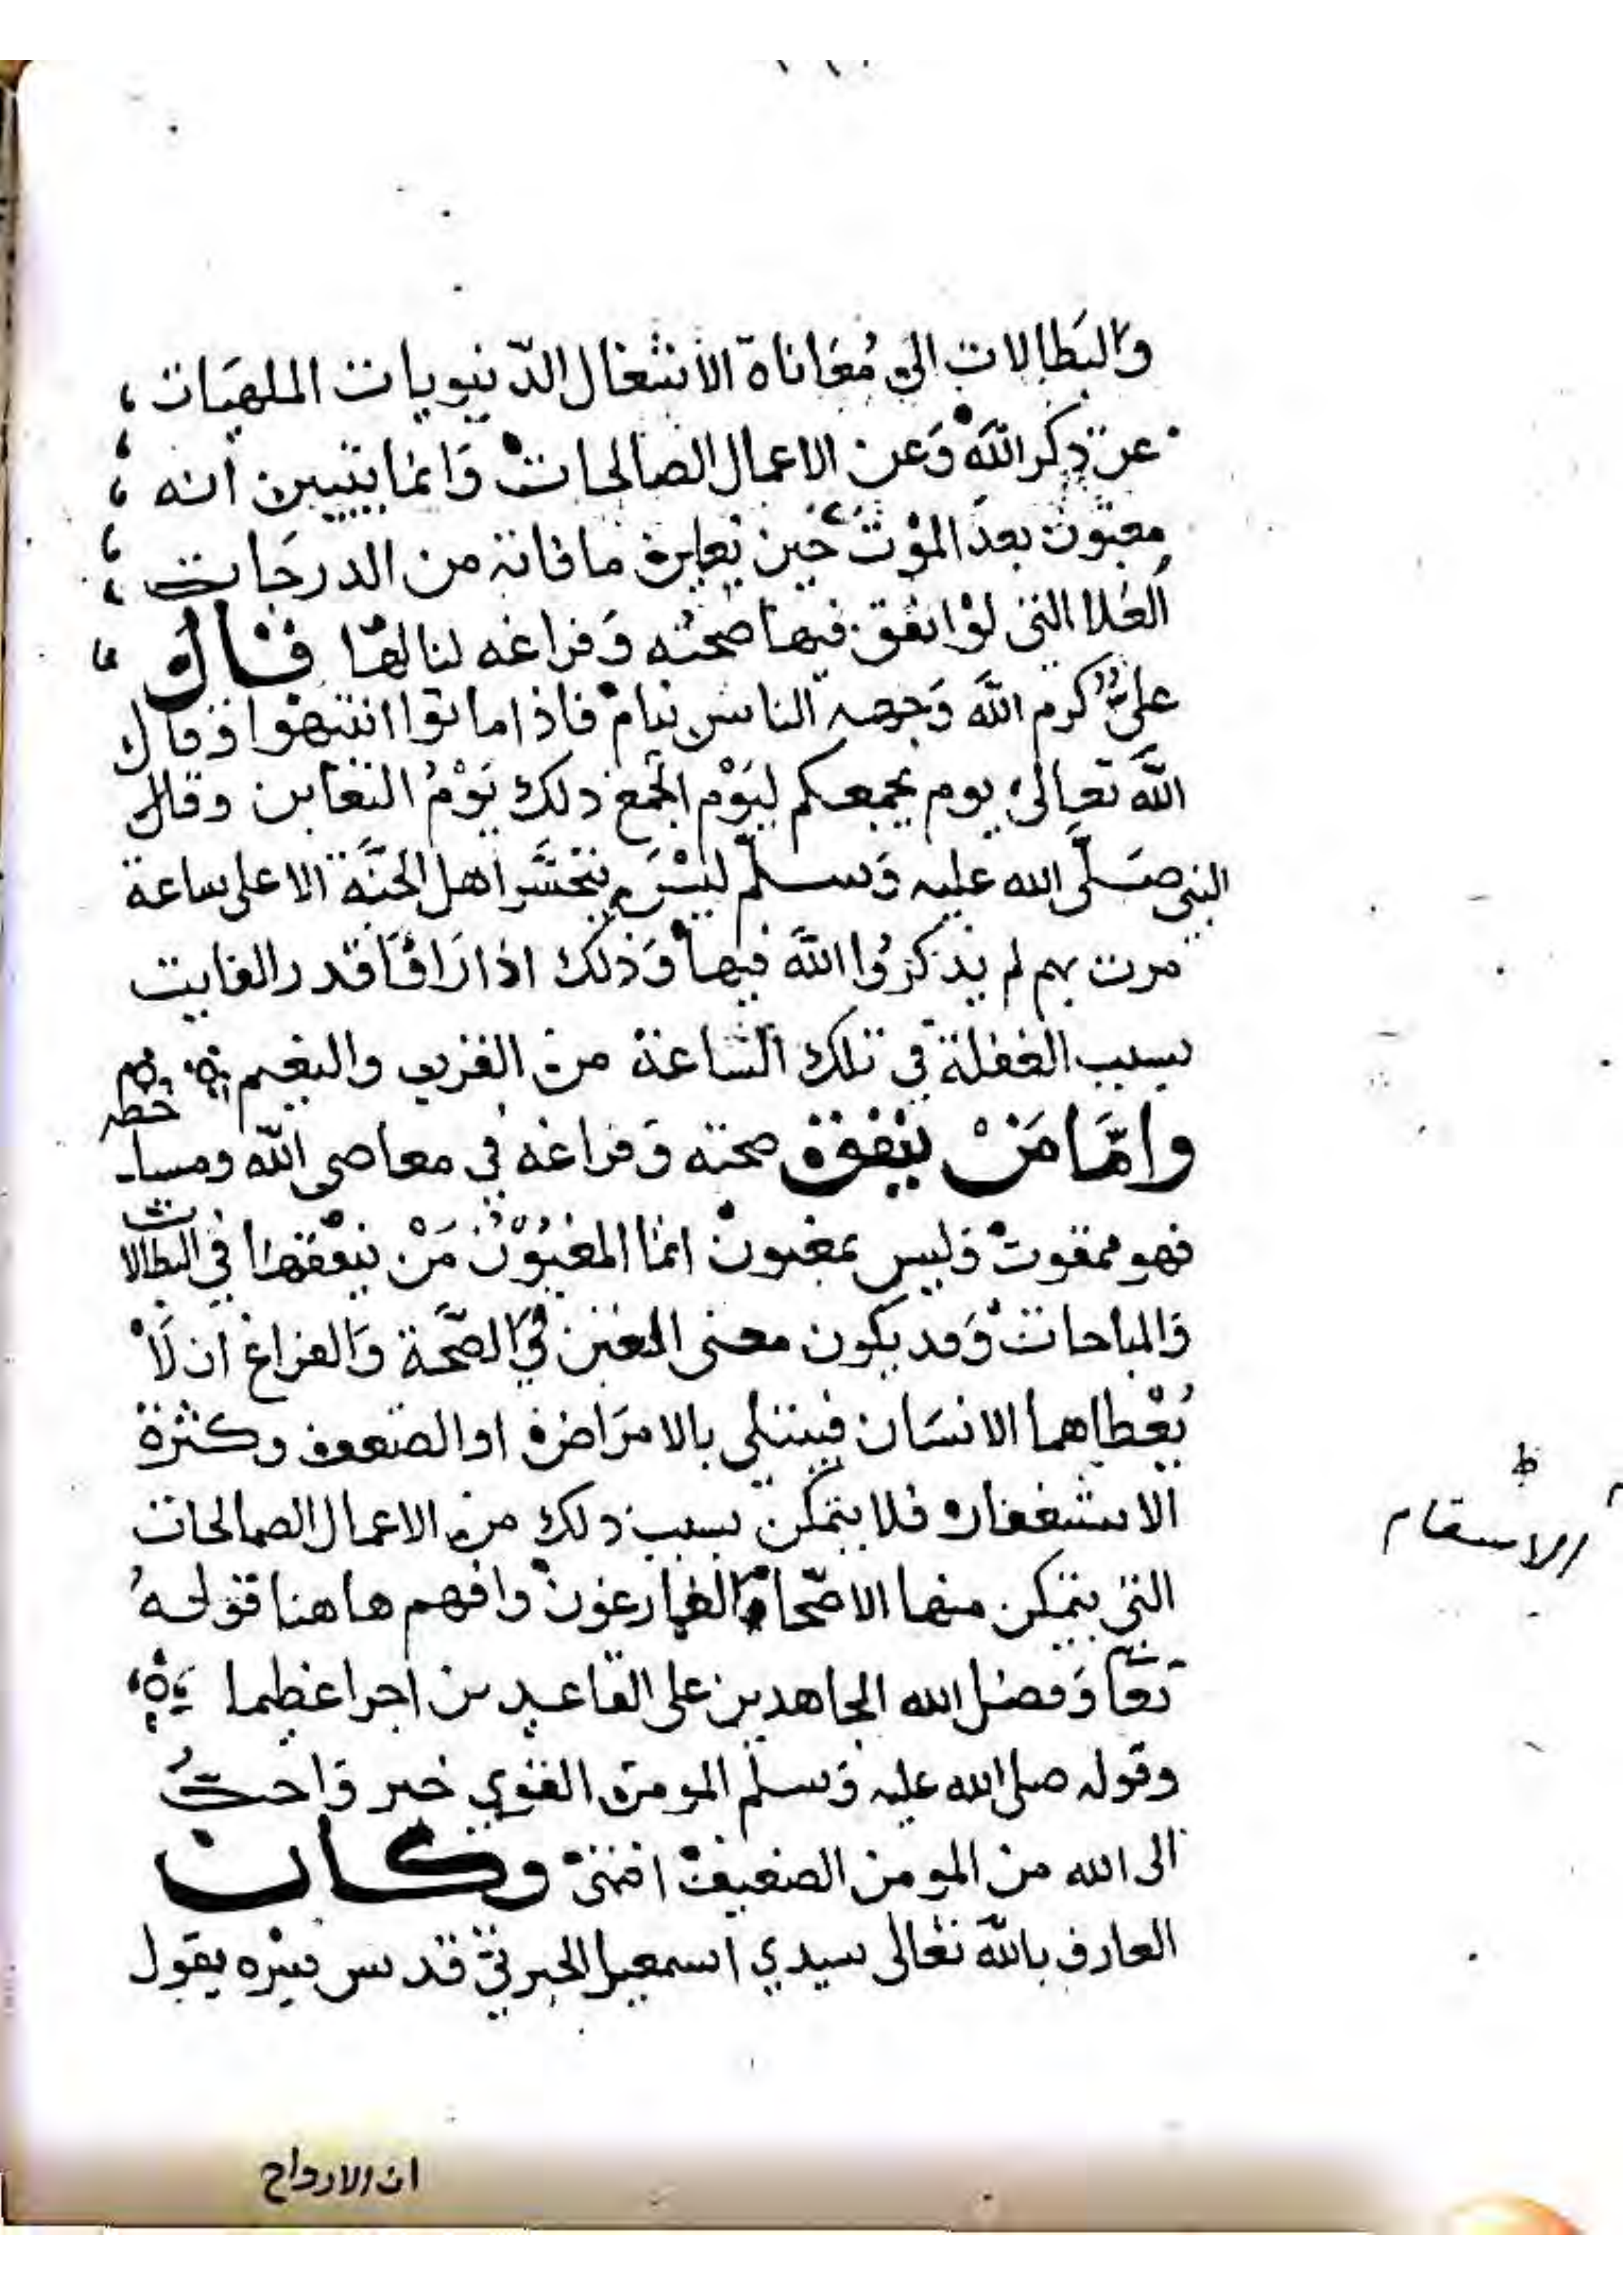 والبَطالات الى مُعَاناة الأشغال الدّنيويات الملهيات
عن ذكر اللّه وَعن الاعمال الصالحات وَانما يتبين أنه
مغبون بعد الموْت حين يعاين ما فاته من الدرجات
العُلا التى لوْ انفق فيها صحته وَفراغه لنالها قال
علىّ كرم اللّه وَجهه الناس نيام فاذا ماتوا انتبهوا وَقال
اللّه تعالىٰ يوم يجمعكم ليَوْم الجَمع ذلك يَوْمُ التغابن وقال
النبى صَلّى الله عليه وَسلّم ليْسَ يتحسَّر اهل الجنَّة الا على ساعة
مرت بهم لم يذكرُوا اللّه فيها وَذلك اذا رَاوْا قدر الفايت
بسبب الغفلة في تلك السَّاعة من القرب والنعيم
وامَّا مَنْ ينفق صحته وَفراغه في معاصى اللّه ومساخطه
فهو ممقوت وَليس بمغبون انما المغبُوْن مَنْ ينفقهَا في البطالات
وَالمباحات وَقد يكون معنى الغبن في الصّحَّة وَالفراغ ان لَا
يُعْطاهما الانسَان فيبتلى بالامرَاض او الضعف وكثرة
الاشغال فلا يتمكن بسبب ذلك من الاعمال الصالحات
التي يتمكن منها الاصّحاء الفارغون وافهم هاهنا قولهُ
تعَا وَفضل الله المجاهدين على القاعدين اجرا عظيما
وقوله صلى الله عليه وَسلم المومن القوي خير وَاحبُّ
الى الله من المومن الضعيف افتنى وكان
العارف باللّه تعَالى سيدي اسمعيل الجبرتيّ قدس سِرّه يقول
ط
الاسقام
ان الارواح